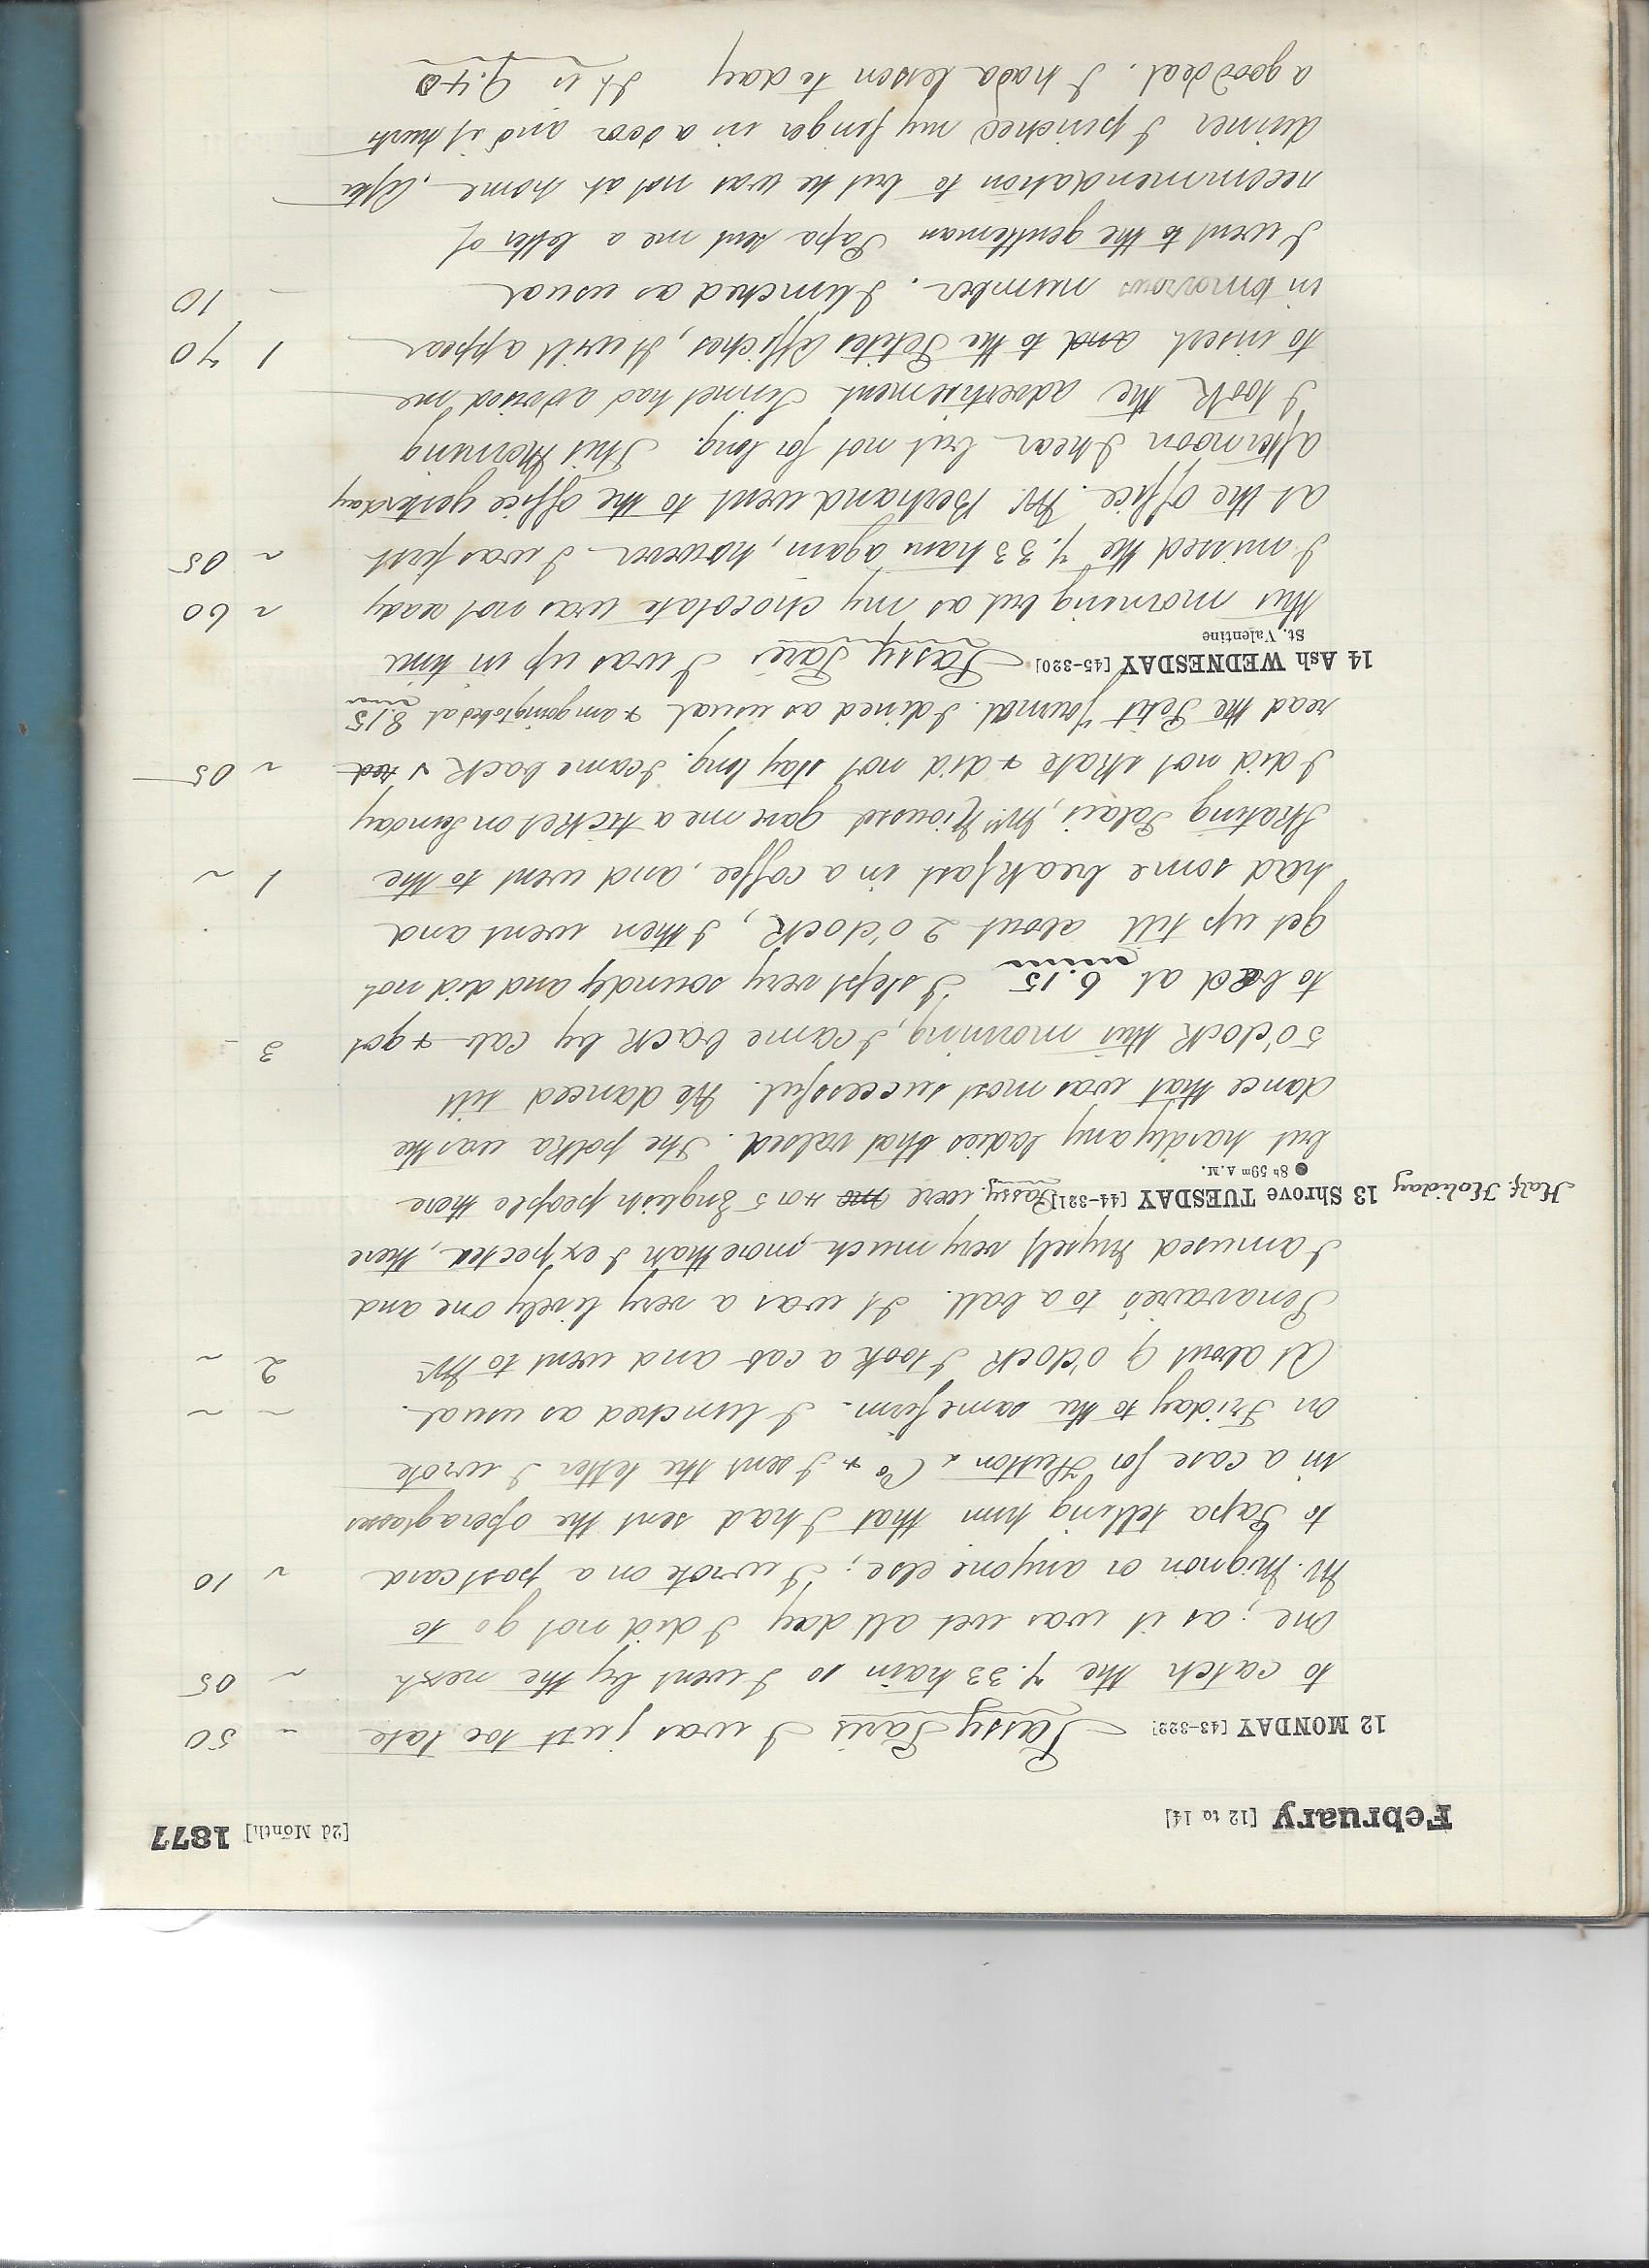 February [12 to 14] [2d Month] 1877
12 MONDAY [43-322] Passy Paris I was just too late ~ 50
to catch the 7.33 train so I went by the next ~ 05
one; as it was wet all day I did not go to
Mr. Mignon or anyone else; I wrote on a postcard ~ 10
to Papa telling him that I had sent the operaglasses
in a case for Hutton & Co & I sent the letter I wrote
on Friday to the same firm. I lunched as usual. ~ ~
At about 9 o'clock I took a cab and went to Mr 2 ~
to a ball. It was a very lively one and
I amused myself very much, more than I expected, there
Half Holiday 13 Shrove TUESDAY [44-321] Passy. were 4 or 5 English people there
● 8h 59m A.M.
but hardly any ladies that valsed. The polka was the
dance that was most successful. We danced till
5 o'clock this morning, I came back by cab & got 3 -
to bed at 6.15 I slept very soundly and did not
get up till about 2 o'clock, I then went and
had some breakfast in a coffee, and went to the 1 ~
Skating Palais, Mr. gave me a ticket on Sunday
I did not skate & did not stay long. I came back & red ~ 05
read the Petit Journal. I dined as usual & am going to bed at 8.15
14 Ash WEDNESDAY [45-320] Passy Paris I was up in time
St. Valentine
this morning but as my chocolate was not ready ~ 60
I missed the 7.33 train again, however I was first ~ 05
at the office. Mr. Bertrand went to the office yesterday
afternoon I hear but not for long. This Morning
I took the advertisement had advised me
to insert and to the Petites Affiches, It will appear 1 70
in tomorrows number. I lunched as usual - 10
I went to the gentleman Papa sent me a letter of
recommendation to but he was not at home. After
dinner I pinched my finger in a door and it hurts
a good deal. I had a lesson to day It is 9.40